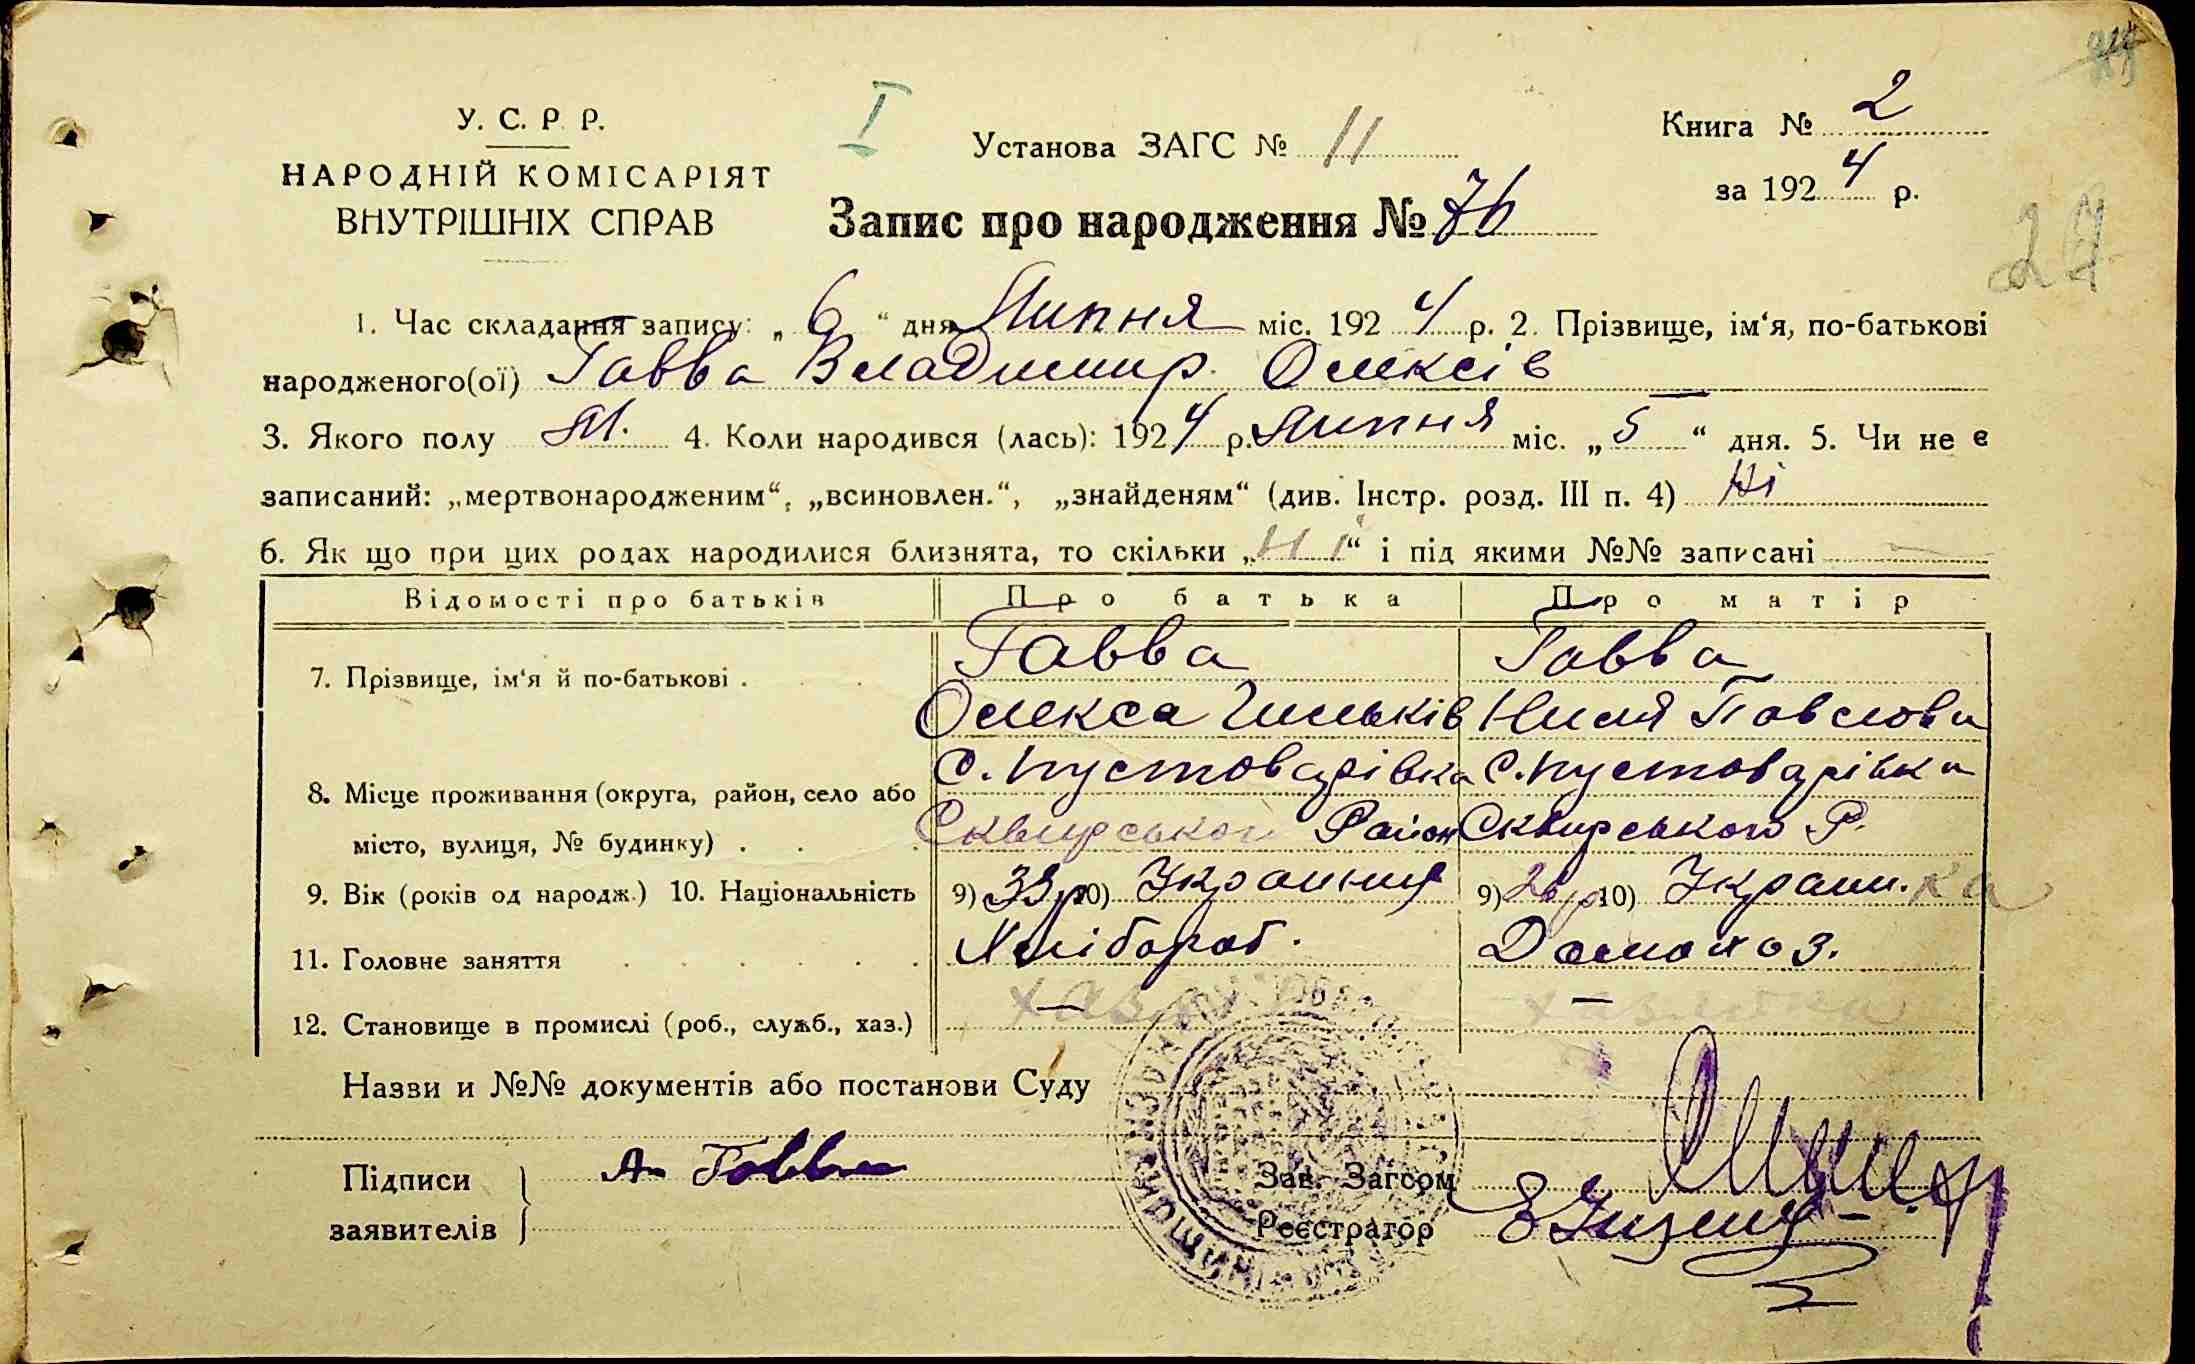 У. С. Р. Р.
НАРОДНІЙ КОМІСАРІЯТ
ВНУТРІШНІХ СПРАВ
I
Установа ЗАГС № 11
Книга № 2
за 1924 р.
27
Запис про народження № 76
1. Час складання запису: „ 6 “ дня Липня міс. 1924 р. 2. Прізвище, ім‘я, по-батькові
народженого(ої) Гавва Владимир Олексів
3. Якого полу М. 4. Коли народився (лась): 1924 р. Липня міс. „ 5 “ дня. 5. Чи не є
записаний: „мертвонародженим“, „всиновлен.“, „знайденям“ (див. Інстр. розд. III п. 4) Ні
6. Як що при цих родах народилися близнята, то скільки „ Ні “ і під якими №№ записані —
Відомості про батьків Про батька Про матір
7. Прізвище, ім‘я й по-батькові . Гавва Гавва
Олекса Павлова
С. Пустоварівка С. Пустоварівка
8. Місце проживання (округа, район, село або
місто, вулиця, № будинку) . Сквирського Район Сквирського Р.
9. Вік (років од народж.) 10. Національність 9) 10) 9) 10) Украин.ка
11. Головне заняття Хлібороб. Домахоз.
12. Становище в промислі (роб., служб., хаз.) — — хазяйка
Назви и №№ документів або постанови Суду
Підписи Гавва Зав. Загсом
заявителів Реєстратор